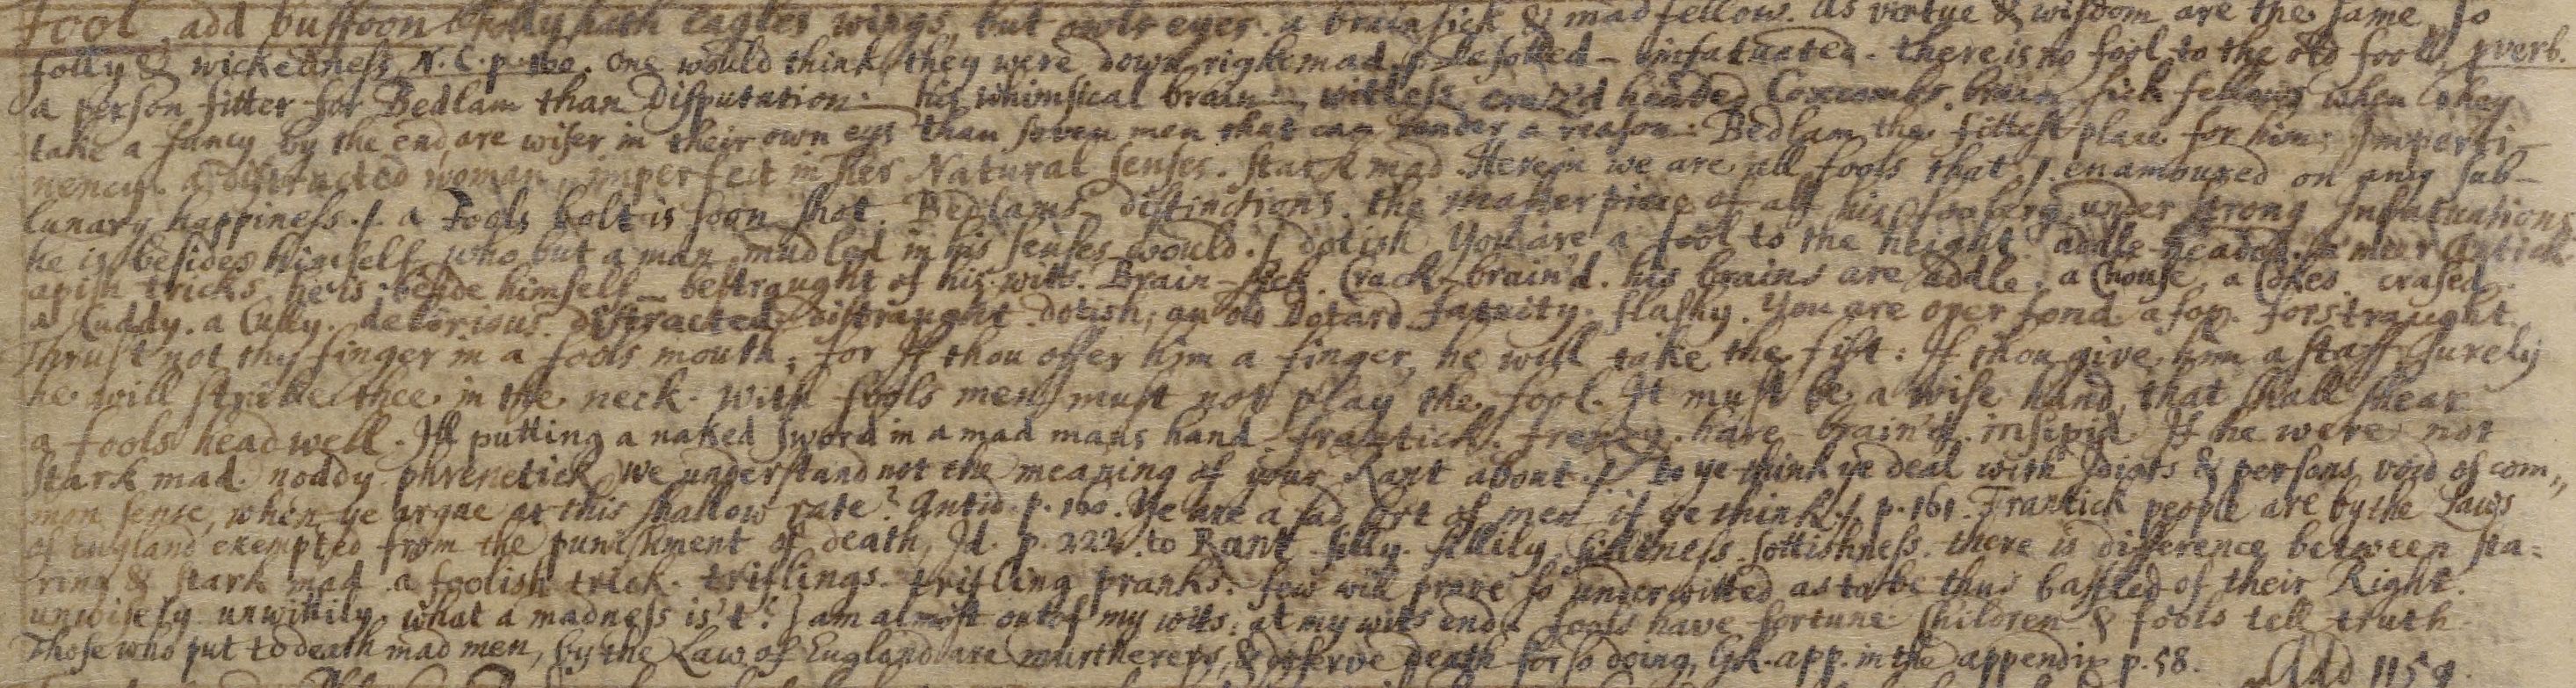 Fool. add buffoon folly hath eagles wings, but owls eyes. a brainsick & mad fellow. As vertue & wisdom are the same, so
folly & wickedness, N.C.p.160. One would think they were down right mad. besotted - infatuated. there is no fool to the old fool, pverb.
a person fitter for Bedlam than Disputation. his whimsical brain. witless craz'd headed Coxcombs. brain sick fellows when they
take a fancy by the end, are wiser in their own eys than seven men that can render a reason. Bedlam the fittest place for him. Imperti-
nency. a distracted woman, imperfect in her Natural senses. stark mad. Herein we are all fools that /. enamoured on any sub-
lunary happiness./. a Fools bolt is soon shot. Bedlams distinctions. the Masterpiece of all his foolery. under strong Infatuations
he is besides himself who but a man mudled in his senses would./ dotish You are a fool to the height. addle-headed. a meer Antick
apish tricks he is beside himself - bestraught of his wits. Brain-sick. Crack-brain'd. his brains are addle. a Chouse, a Cokes crased
a Cuddy. a Cully. delirious. distracted distraught dotish; an old Dotard fatuity. flashy. You are over fond a fop. forstraught.
Thrust not thy finger in a fools mouth; for If thou offer him a finger, he will take the fist: If thou give him a staff surely
he will strike thee in the neck. With fools men must not play the fool. It must be a wise hand, that shall shear
a fools head well. Ill putting a naked sword in a mad mans hand frantick. frenzy. hare-brain'd. insipid If he were not
stark mad. noddy phrenetick We understand not the meaning of your Rant about./ Do ye think ye deal with Idiots & persons void of com„
mon sense, when ye argue at this shallow rate? Antid. p.160. Ye are a sad sort of men if ye think./ p.161. Frantick people are by the Laws
of England exempted from the punishment of death, Id. p.222. to Rant silly. sillily, silliness sottishness. there is difference between sta=
ring & stark mad a foolish trick. triflings. trifling pranks. few will prove so underwitted as to be thus baffled of their Right.
unwisely unwittily, what a madness is't? I am almost out of my wits. at my wits end. fools have fortune. Children & fools tell truth.
Those who put to death mad men, by the Law of England are murtherers, & deserve death for so doing, app. in the appendix p.58. Add 1159.